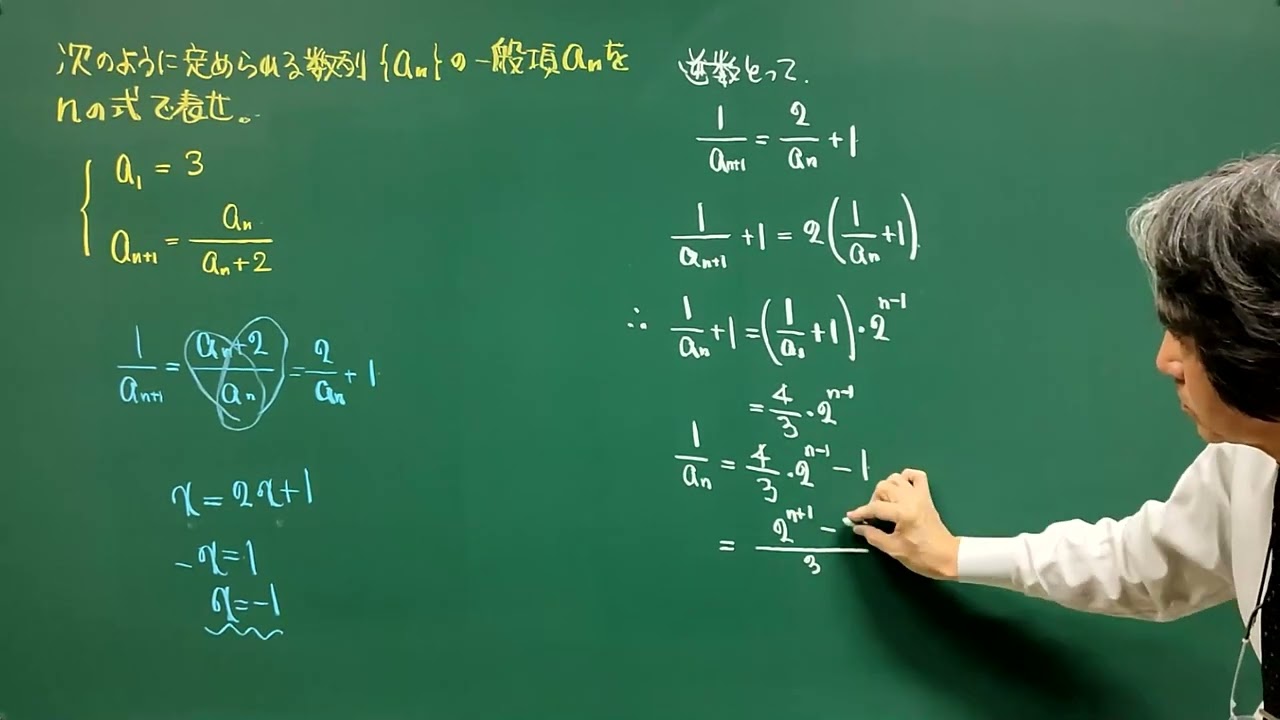 次のように定められる数列{aₙ}の一般項aₙを
nの式で表せ。
a₁ = 3
aₙ₊₁ = aₙ/(aₙ+2)
1/aₙ₊₁ = (aₙ+2)/aₙ = 2/aₙ + 1
x = 2x+1
-x = 1
x = -1
逆数とって.
1/aₙ₊₁ = 2/aₙ + 1
1/aₙ₊₁ + 1 = 2(1/aₙ + 1)
∴ 1/aₙ + 1 = (1/a₁ + 1)・2ⁿ⁻¹
= 4/3・2ⁿ⁻¹
1/aₙ = 4/3・2ⁿ⁻¹ - 1
= (2ⁿ⁺¹ - )/3